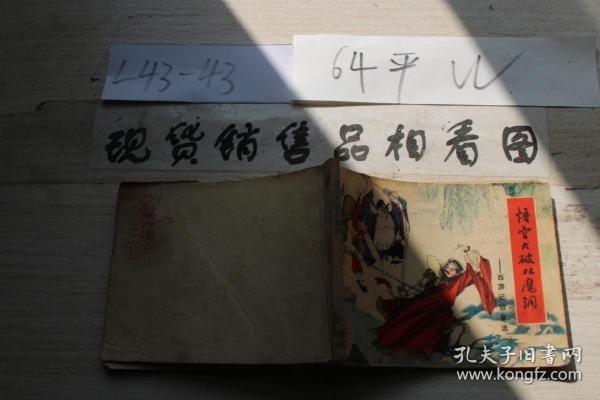 L43-43
64平
现货销售品相看图
悟空大破双魔洞
——西游记故事选
孔夫子旧书网
www.kongfz.com